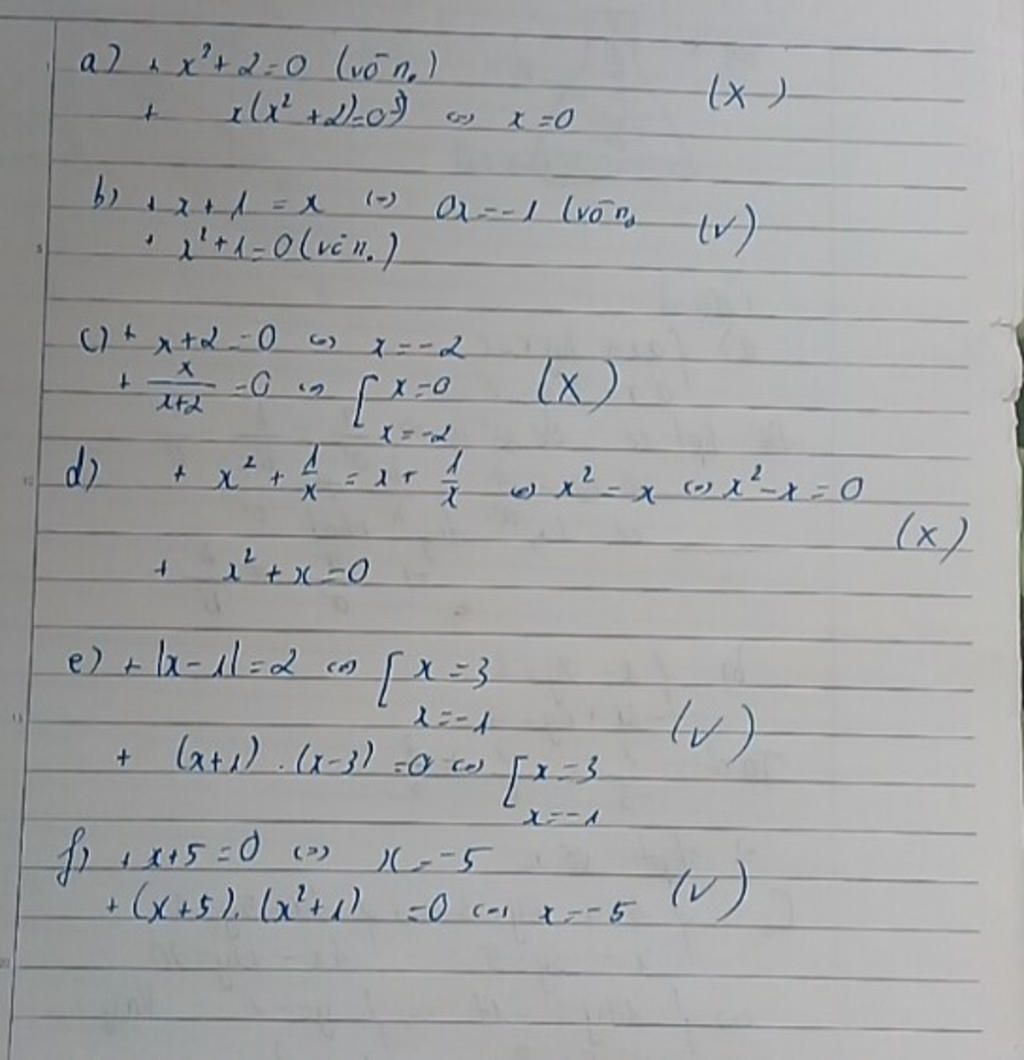 a) + x² + 2 = 0 (vô n.) (X)
+ x(x² + 2) = 0 ⇔ x = 0
b) + x + 1 = x ⇔ 0x = -1 (vô n. (v)
+ x² + 1 = 0 (vô n.)
c) + x + 2 = 0 ⇔ x = -2
+ x/(x+2) = 0 ⇔ [ x = 0 (X)
x = -2
d) + x² + 1/x = x + 1/x ⇔ x² = x ⇔ x² - x = 0
(X)
+ x² + x = 0
e) + |x - 1| = 2 ⇔ [ x = 3
x = -1 (v)
+ (x+1) . (x-3) = 0 ⇔ [ x = 3
x = -1
f) + x + 5 = 0 ⇔ x = -5
+ (x+5). (x²+1) = 0 ⇔ x = -5 (v)